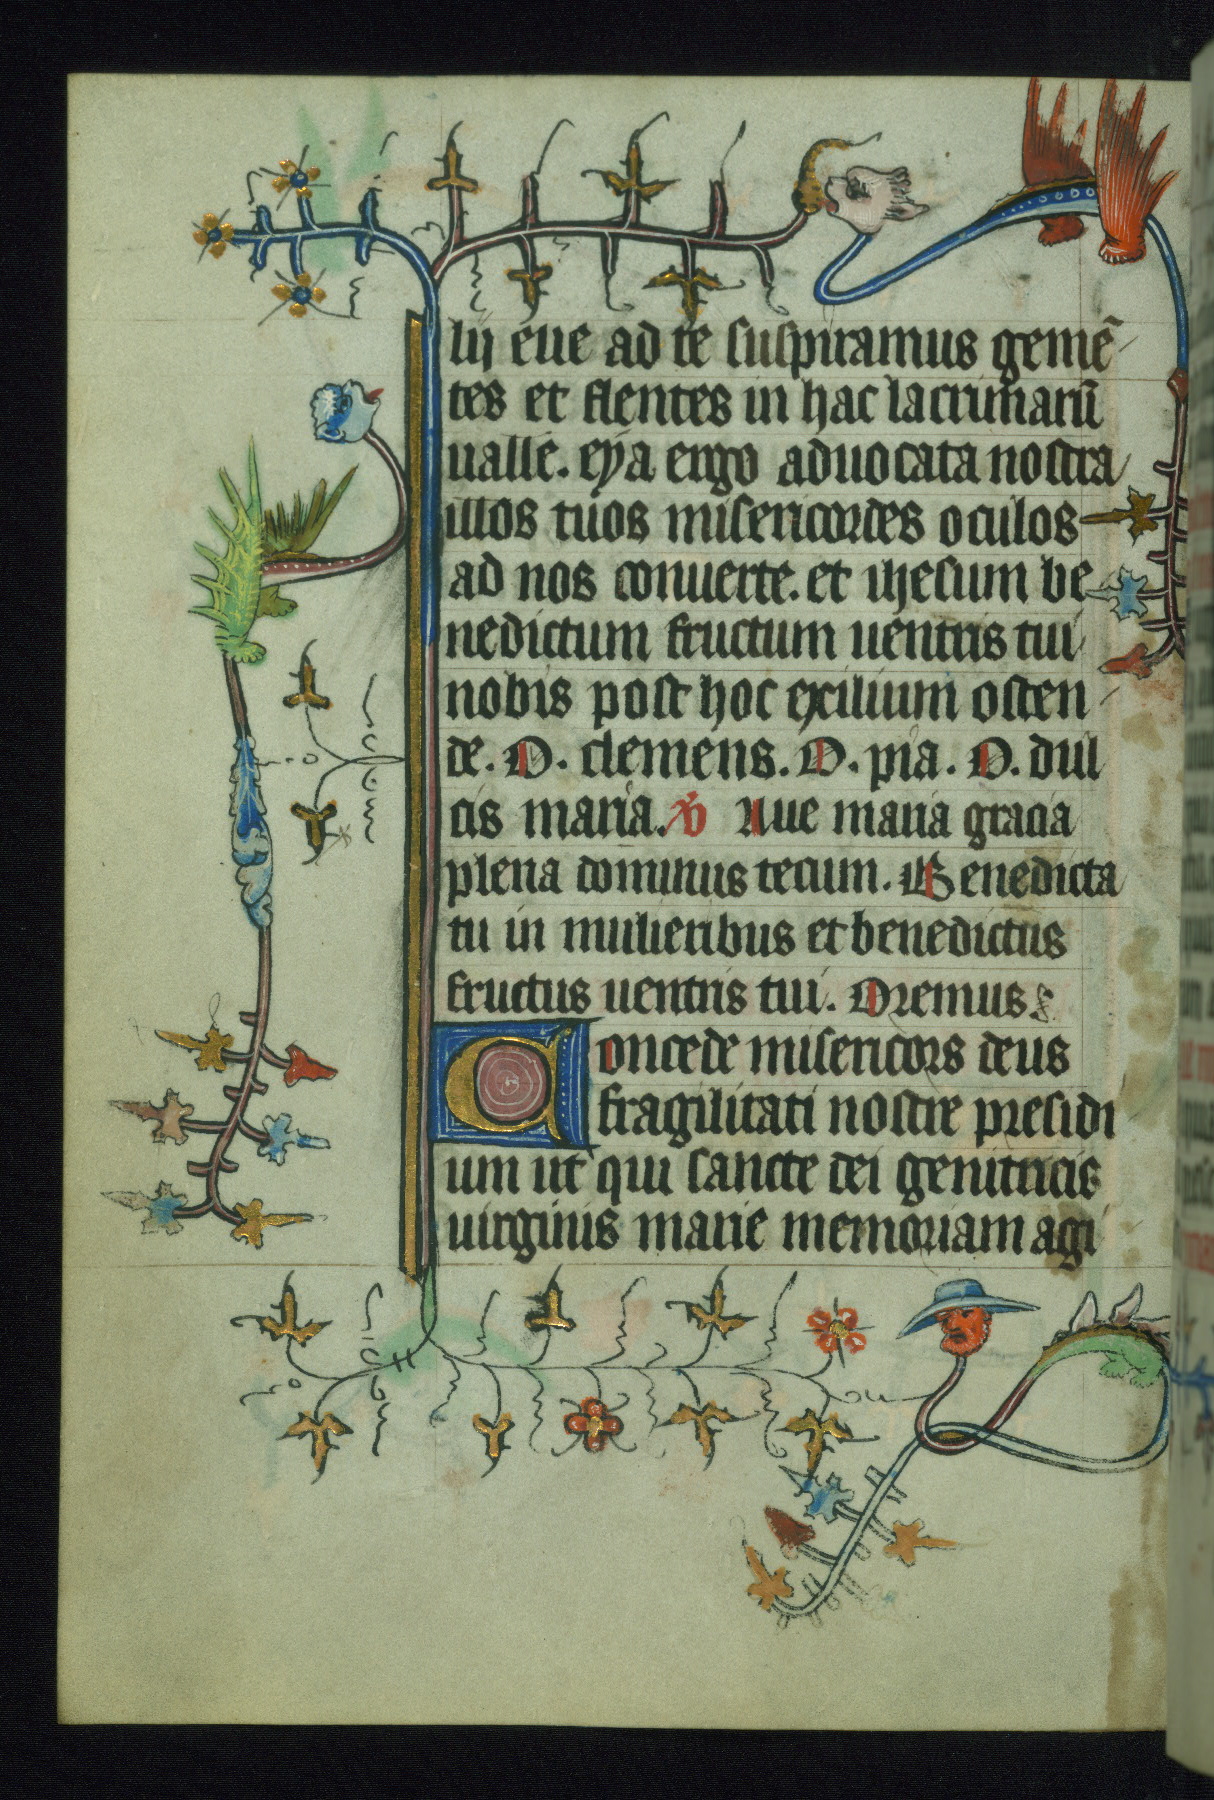 lii eue ad te suspiramus gemē
tes et flentes in hac lacrimarū
ualle. eya ergo aduocata nostra
illos tuos misericordes oculos
ad nos conuerte. et ihesum be
nedictum fructum uentris tui
nobis post hoc exilium osten
de. O. clemens. O. pia. O. dul
cis maria. Aue maria gracia
plena dominus tecum. Benedicta
tu in mulieribus et benedictus
fructus uentris tui. Oremus.
Concede misericors deus
fragilitati nostre presidi
um ut qui sancte dei genitricis
uirginis marie memoriam agi